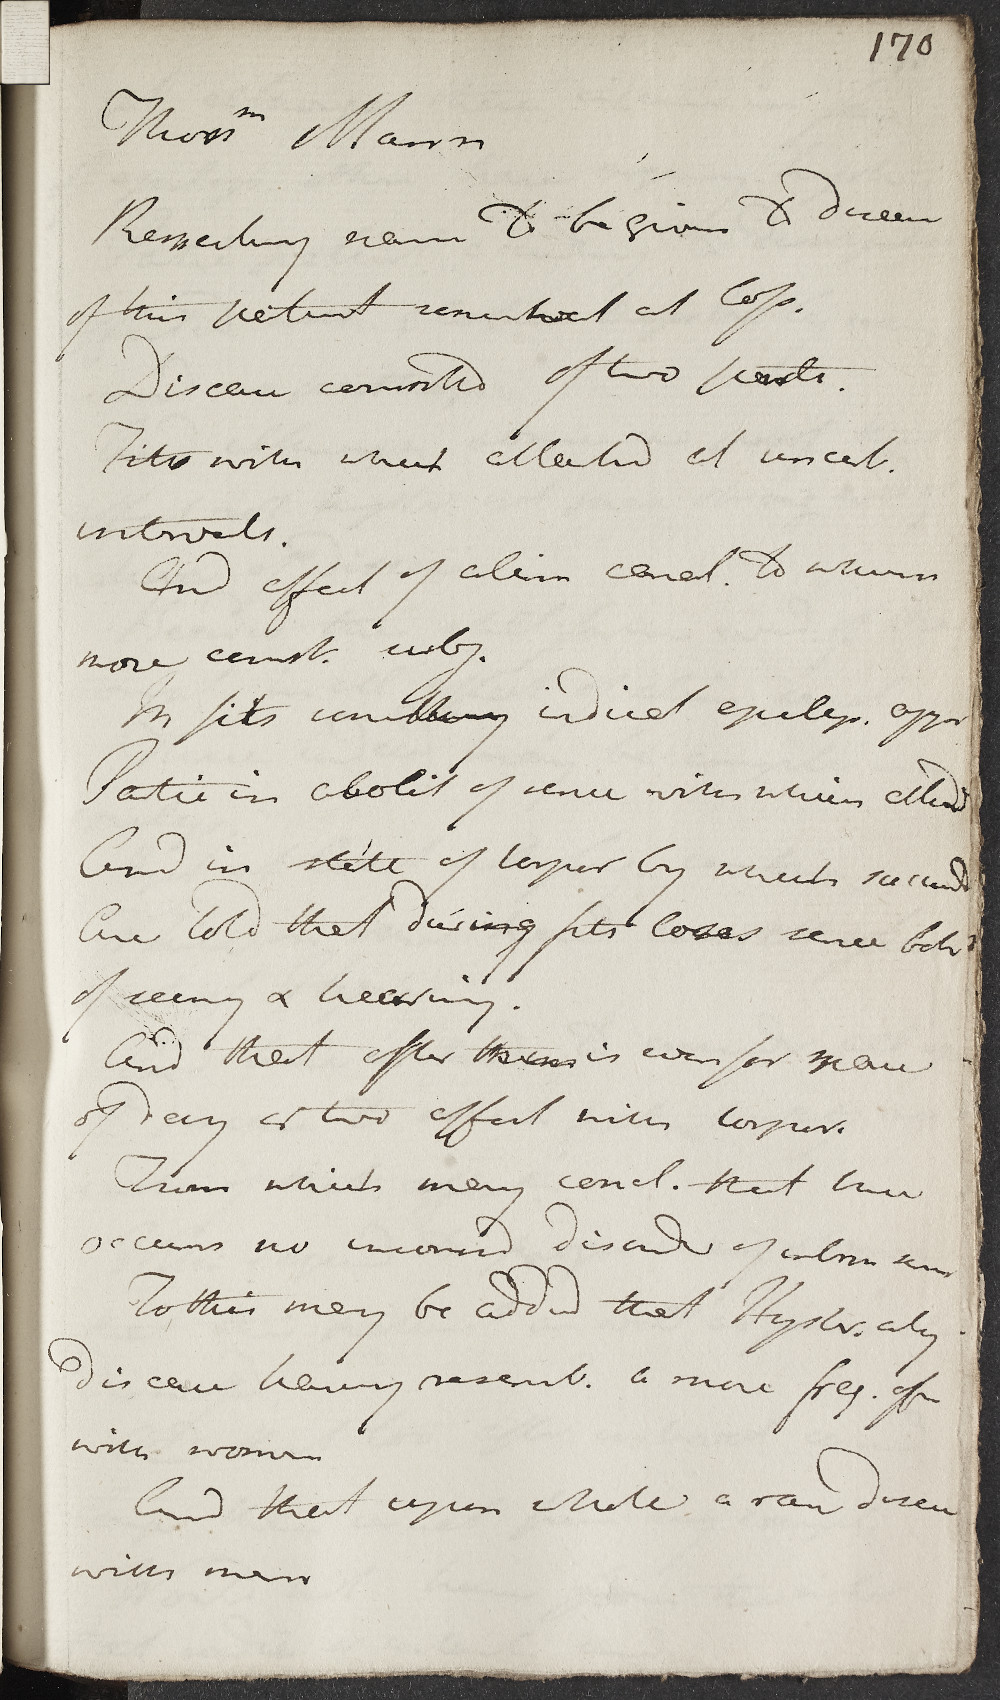 170
Thos^m Mann
Respecting name to be given to disease
of this patient somewhat at loss.
Disease consisted of two parts.
Fits with which attacked at uncert.
intervals.
And affect of alim canal. to whom
more const. subj.
In fits something indicat epilep. oppr
Partic in abolit of sense with which attend
And in state of torpor by which succeed
Are told that during fits loses sense both
of seeing & hearing.
And that after them is even for space
of day or two affect with torpor.
From which may concl. that here
occurs no inconsid disorder of intern sens
To this may be added that Hyster. a
disease having resemb. a more freq. of
with women
And that upon whole a rare disease
with men